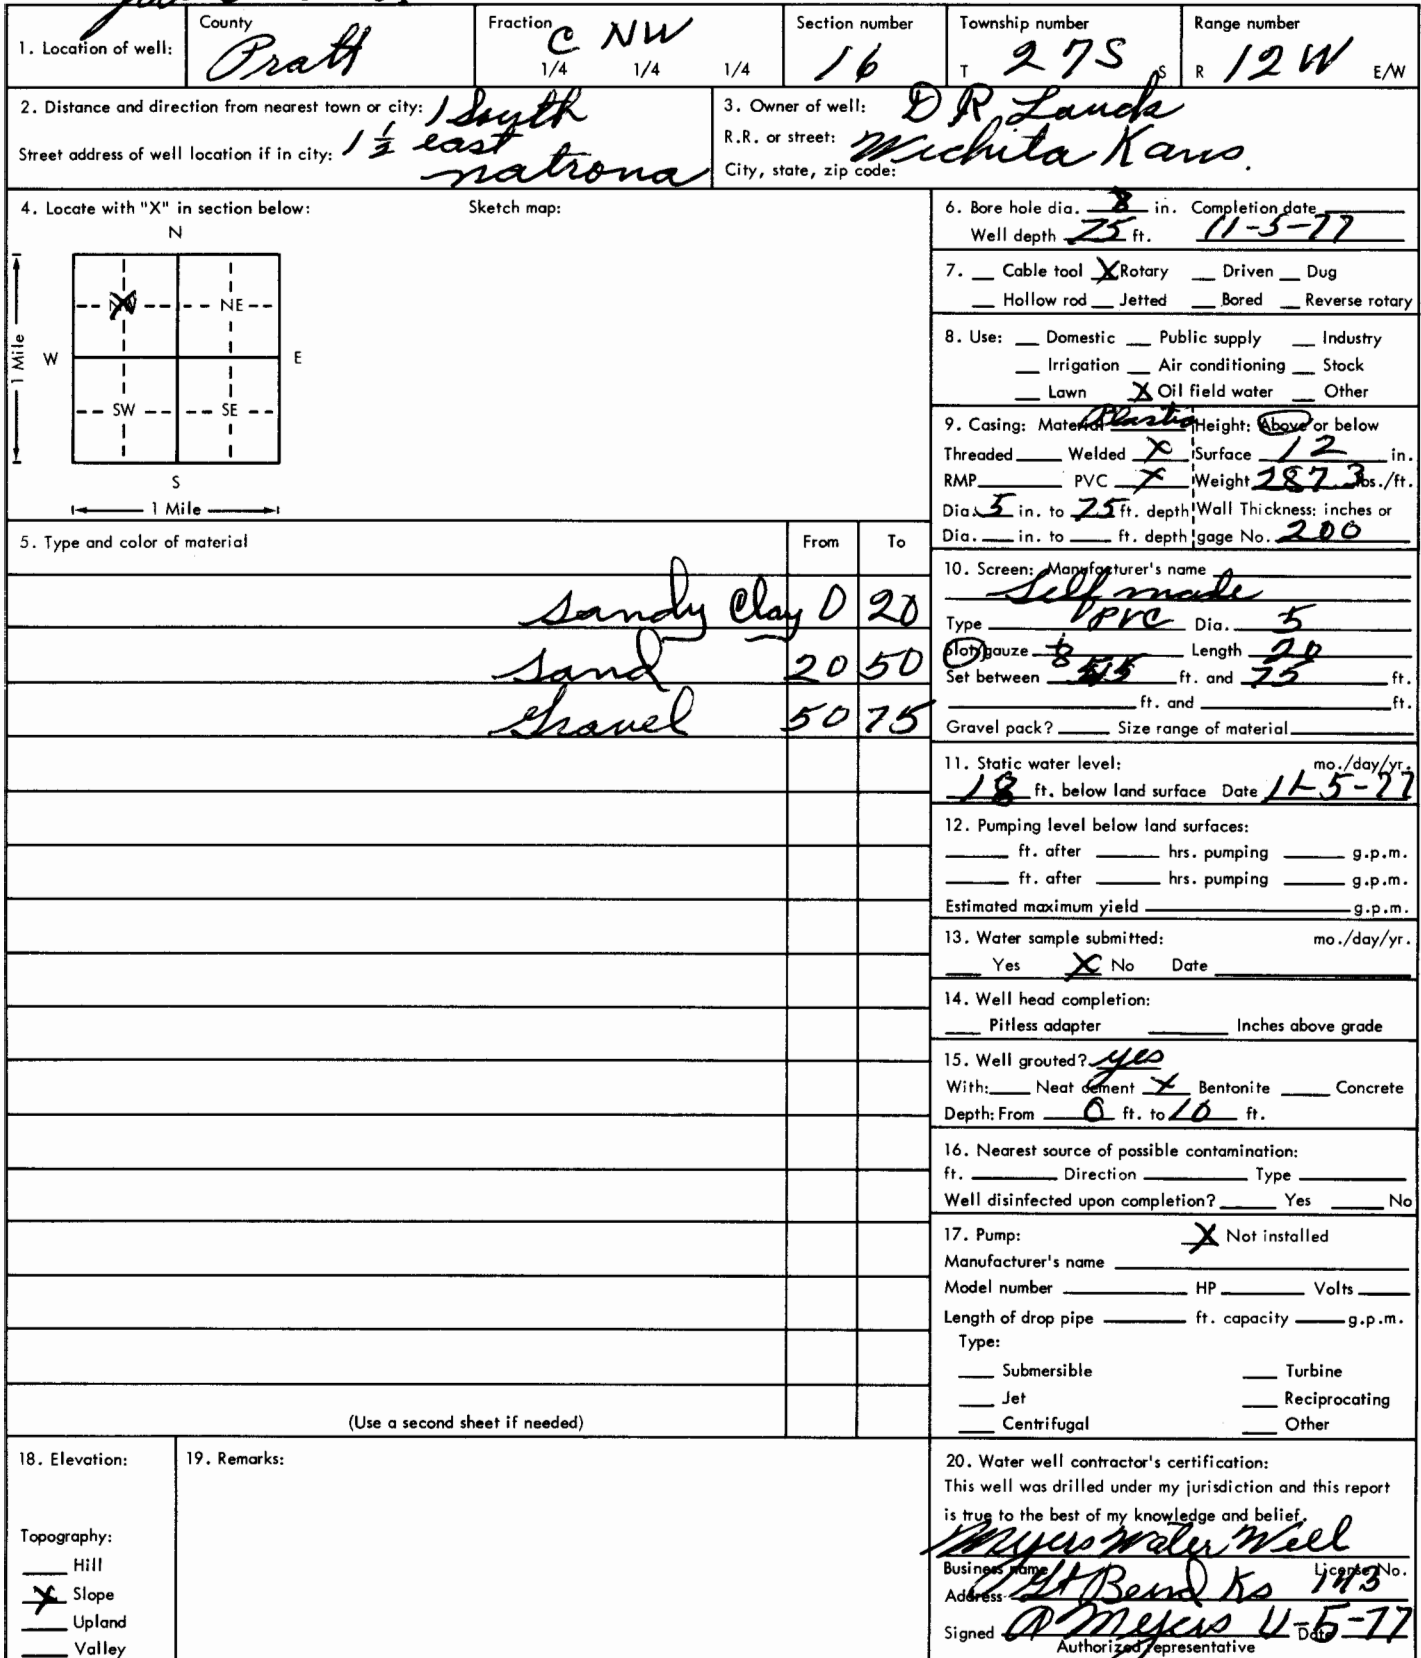 County Fraction Section number Township number Range number
1. Location of well: Pratt C NW 16 27S 12W
1/4 1/4 1/4 T S R E/W
2. Distance and direction from nearest town or city: 1 South
Street address of well location if in city: 1 1/2 east
natrona
3. Owner of well: D R Lauck
R.R. or street: Wichita Kans.
City, state, zip code:
4. Locate with "X" in section below: Sketch map:
N
NW NE
W E
1 Mile
SW SE
S
1 Mile
5. Type and color of material From To
Sandy Clay 0 20
Sand 20 50
Gravel 50 75
(Use a second sheet if needed)
6. Bore hole dia. 8 in. Completion date
Well depth 75 ft. 11-5-77
7. Cable tool X Rotary Driven Dug
Hollow rod Jetted Bored Reverse rotary
8. Use: Domestic Public supply Industry
Irrigation Air conditioning Stock
Lawn X Oil field water Other
9. Casing: Material Plastic Height: Above or below
Threaded Welded X Surface 12 in.
RMP PVC X Weight 287.3 lbs./ft.
Dia. 5 in. to 75 ft. depth Wall Thickness: inches or
Dia. in. to ft. depth gage No. 200
10. Screen: Manufacturer's name
Self made
Type PVC Dia. 5
Slot/gauze 1/8 Length 20
Set between 55 ft. and 75 ft.
ft. and ft.
Gravel pack? Size range of material
11. Static water level: mo./day/yr.
18 ft. below land surface Date 11-5-77
12. Pumping level below land surfaces:
ft. after hrs. pumping g.p.m.
ft. after hrs. pumping g.p.m.
Estimated maximum yield g.p.m.
13. Water sample submitted: mo./day/yr.
Yes X No Date
14. Well head completion:
Pitless adapter Inches above grade
15. Well grouted? yes
With: Neat cement X Bentonite Concrete
Depth: From 0 ft. to 10 ft.
16. Nearest source of possible contamination:
ft. Direction Type
Well disinfected upon completion? Yes No
17. Pump: X Not installed
Manufacturer's name
Model number HP Volts
Length of drop pipe ft. capacity g.p.m.
Type:
Submersible Turbine
Jet Reciprocating
Centrifugal Other
18. Elevation:
Topography:
Hill
X Slope
Upland
Valley
19. Remarks:
20. Water well contractor's certification:
This well was drilled under my jurisdiction and this report
is true to the best of my knowledge and belief.
Myers Water Well
Business name License No.
Address Gt Bend Ks 143
Signed D Meyers 11-5-77 Date
Authorized representative